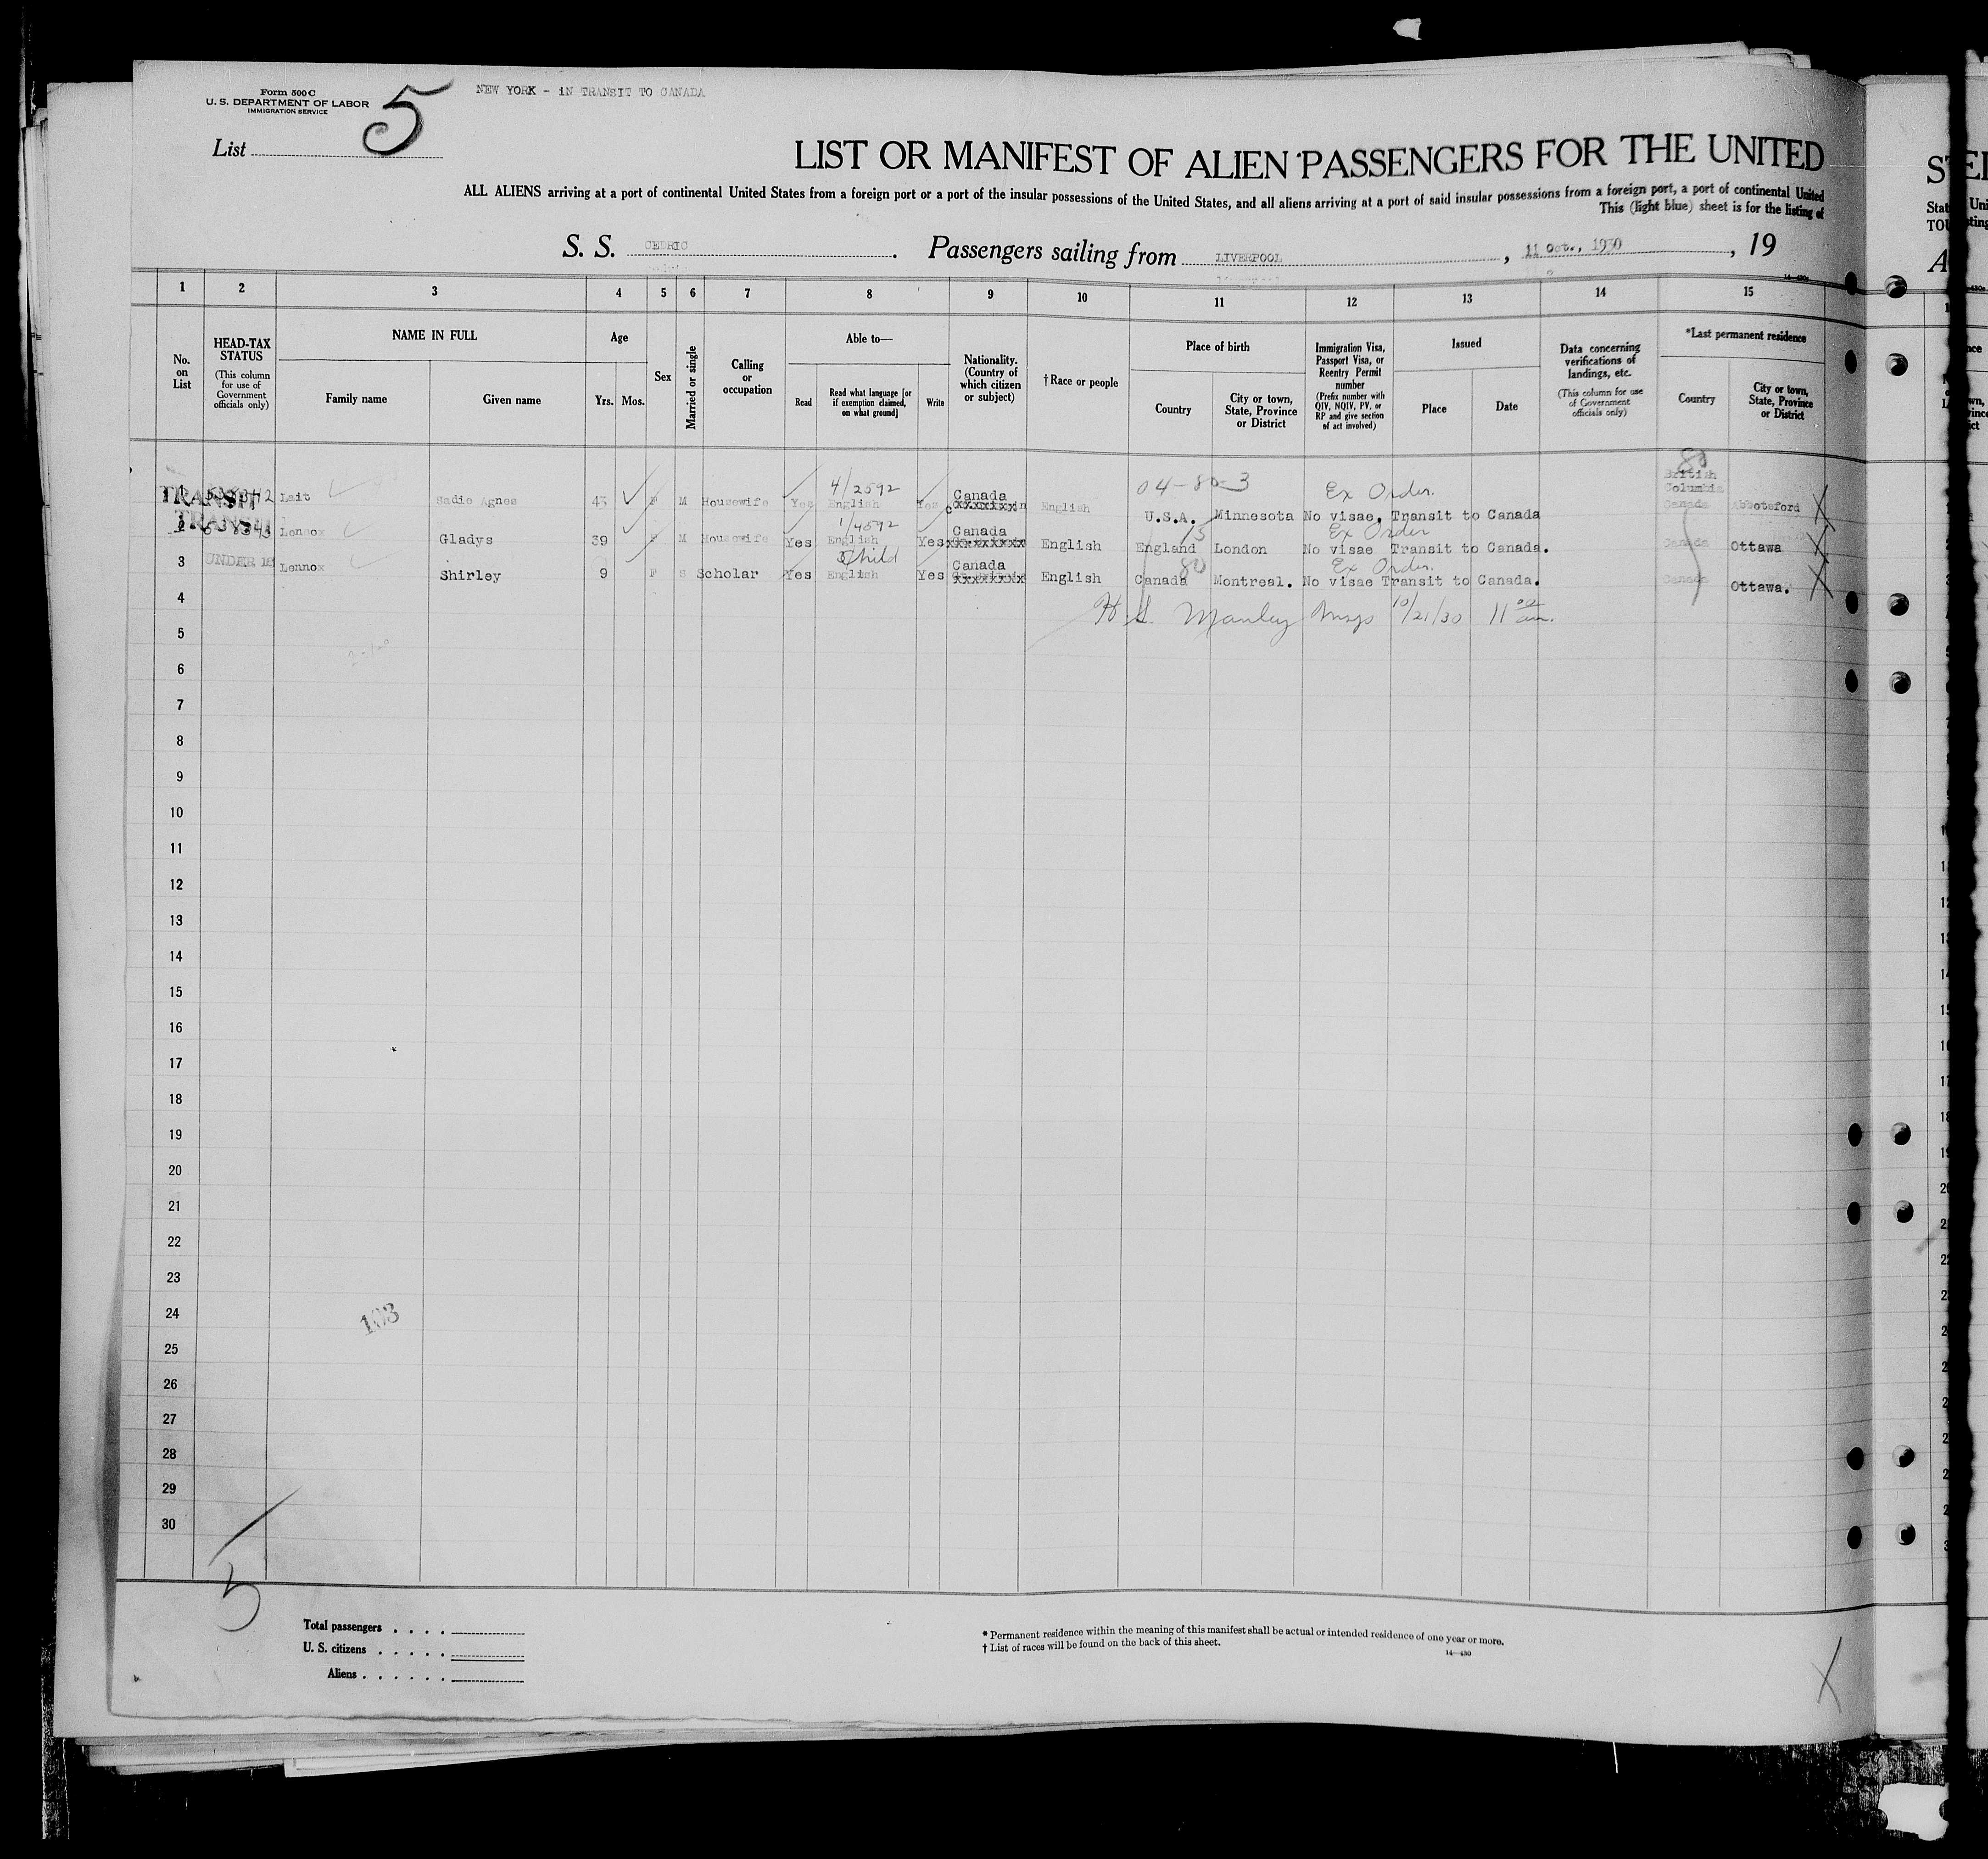 Form 500 C
U. S. DEPARTMENT OF LABOR
IMMIGRATION SERVICE
List 5
NEW YORK - iN TRANSIT TO CANADA
LIST OR MANIFEST OF ALIEN PASSENGERS FOR THE UNITED
ALL ALIENS arriving at a port of continental United States from a foreign port or a port of the insular possessions of the United States, and all aliens arriving at a port of said insular possessions from a foreign port, a port of continental United
This (light blue) sheet is for the listing of
S. S. CEDRIC. Passengers sailing from LIVERPOOL, 11 Oct., 1930, 19
14—430c
1 2 3 4 5 6 7 8 9 10 11 12 13 14 15
No. on List
HEAD-TAX STATUS (This column for use of Government officials only)
NAME IN FULL
Family name Given name
Age
Yrs. Mos.
Sex
Married or single
Calling or occupation
Able to—
Read Read what language [or if exemption claimed, on what ground] Write
Nationality. (Country of which citizen or subject)
† Race or people
Place of birth
Country City or town, State, Province or District
Immigration Visa, Passport Visa, or Reentry Permit number (Prefix number with QIV, NQIV, PV, or RP and give section of act involved)
Issued
Place Date
Data concerning verifications of landings, etc. (This column for use of Government officials only)
*Last permanent residence
Country City or town, State, Province or District
4/2592 04-80-3 Ex Order. 80
1 TRANSIT Lait Sadie Agnes 43 F M Housewife Yes English Yes Canada English U.S.A. Minnesota No visae, Transit to Canada British Columbia Canada Abbotsford
1/4592 15 Ex Order
2 TRANSIT Lennox Gladys 39 F M Housewife Yes English Yes Canada English England London No visae Transit to Canada. Canada Ottawa
Child 80 Ex Order.
3 UNDER 16 Lennox Shirley 9 F S Scholar Yes English Yes Canada English Canada Montreal. No visae Transit to Canada. Canada Ottawa.
4
H. S. Manley Insp 10/21/30 11 00 am.
5
6
7
8
9
10
11
12
13
14
15
16
17
18
19
20
21
22
23
24
103
25
26
27
28
29
30
5
Total passengers . . . .
U. S. citizens . . . . .
Aliens . . . . . .
* Permanent residence within the meaning of this manifest shall be actual or intended residence of one year or more.
† List of races will be found on the back of this sheet.
14—430